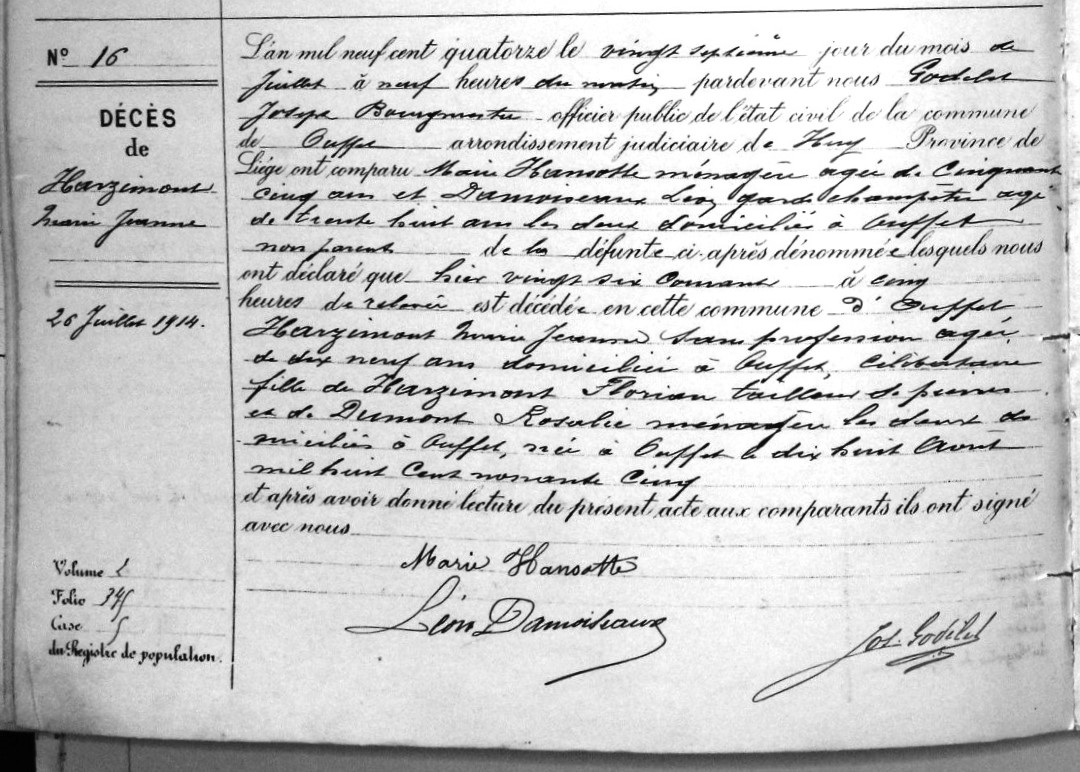 Nº 16
DÉCÈS
de
Harzimont
Marie Jeanne
26 Juillet 1914.
Volume
Folio 345
Case 5
du Registre de population.
L'an mil neuf cent quatorze le vingt septième jour du mois de
Juillet à neuf heures du matin pardevant nous Godelet
Joseph Bourgmestre officier public de l'état civil de la commune
de Ouffet arrondissement judiciaire de Huy Province de
Liége ont comparu Marie Hansotte ménagère agée de Cinquante
cinq ans et Damoiseaux Léon garde champêtre agé
de trente huit ans les deux domiciliés à Ouffet
non parents de la défunte ci-après dénommée lesquels nous
ont déclaré que hier vingt six courant à cinq
heures de relevée est décédée en cette commune d'Ouffet
Harzimont Marie Jeanne sans profession agée
de dix neuf ans domiciliée à Ouffet, célibataire
fille de Harzimont Florian tailleur de pierres
et de Dumont Rosalie ménagère les deux do
miciliés à Ouffet, née à Ouffet le dix huit Aout
mil huit cent nonante cinq
et après avoir donné lecture du présent acte aux comparants ils ont signé
avec nous
Marie Hansotte
Léon Damoiseaux
Jos. Godelet